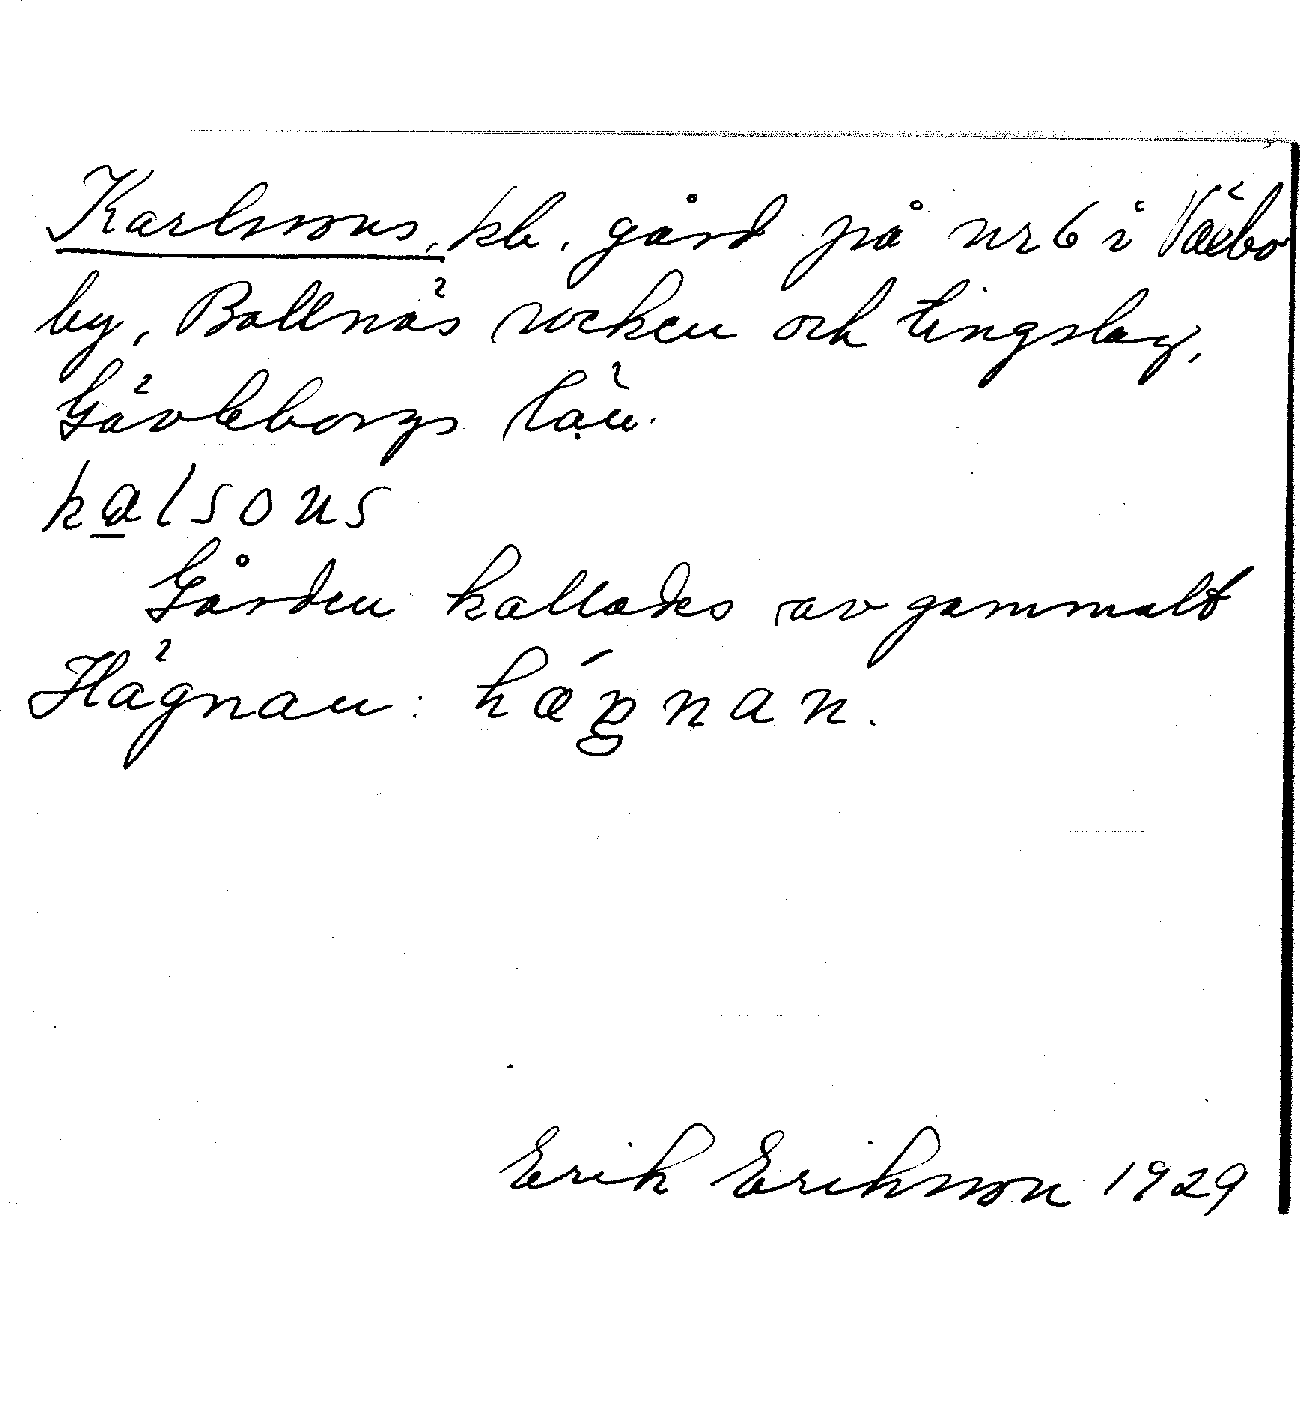 Karlssons, kb. gård på nr 6 i Växbo
by, Bollnäs socken och tingslag,
Gävleborgs län.
kalsons
Gården kallades av gammalt
Hägnan: hæ´gnan.
Erik Eriksson 1929